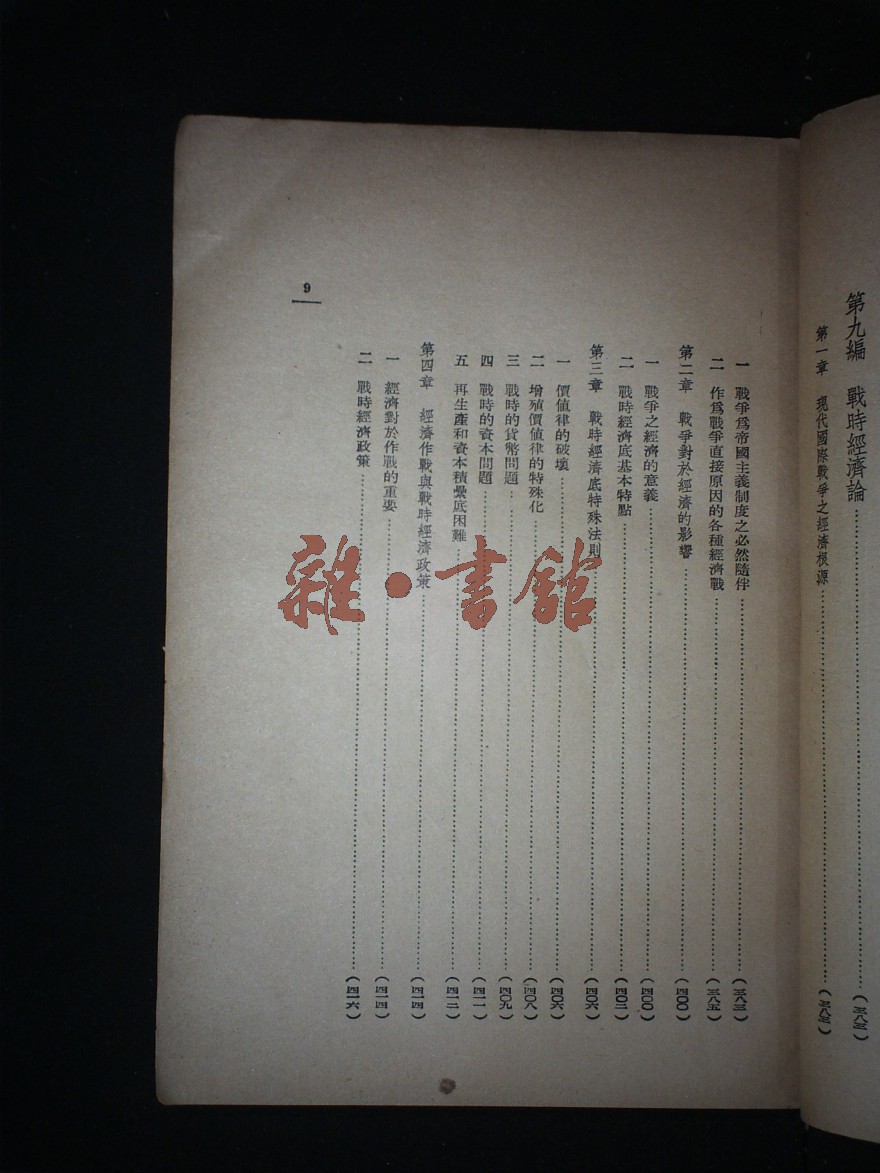 第九編 戰時經濟論……(三八三)
第一章 現代國際戰爭之經濟根源……(三八三)
一 戰爭爲帝國主義制度之必然隨伴……(三八三)
二 作爲戰爭直接原因的各種經濟戰……(三八五)
第二章 戰爭對於經濟的影響……(四〇〇)
一 戰爭之經濟的意義……(四〇〇)
二 戰時經濟底基本特點……(四〇二)
第三章 戰時經濟底特殊法則……(四〇六)
一 價値律的破壞……(四〇六)
二 增殖價値律的特殊化……(四〇八)
三 戰時的貨幣問題……(四〇九)
四 戰時的資本問題……(四一一)
五 再生產和資本積纍底困難……(四一二)
第四章 經濟作戰與戰時經濟政策……(四一四)
一 經濟對於作戰的重要……(四一四)
二 戰時經濟政策……(四一六)
9
雜·書館